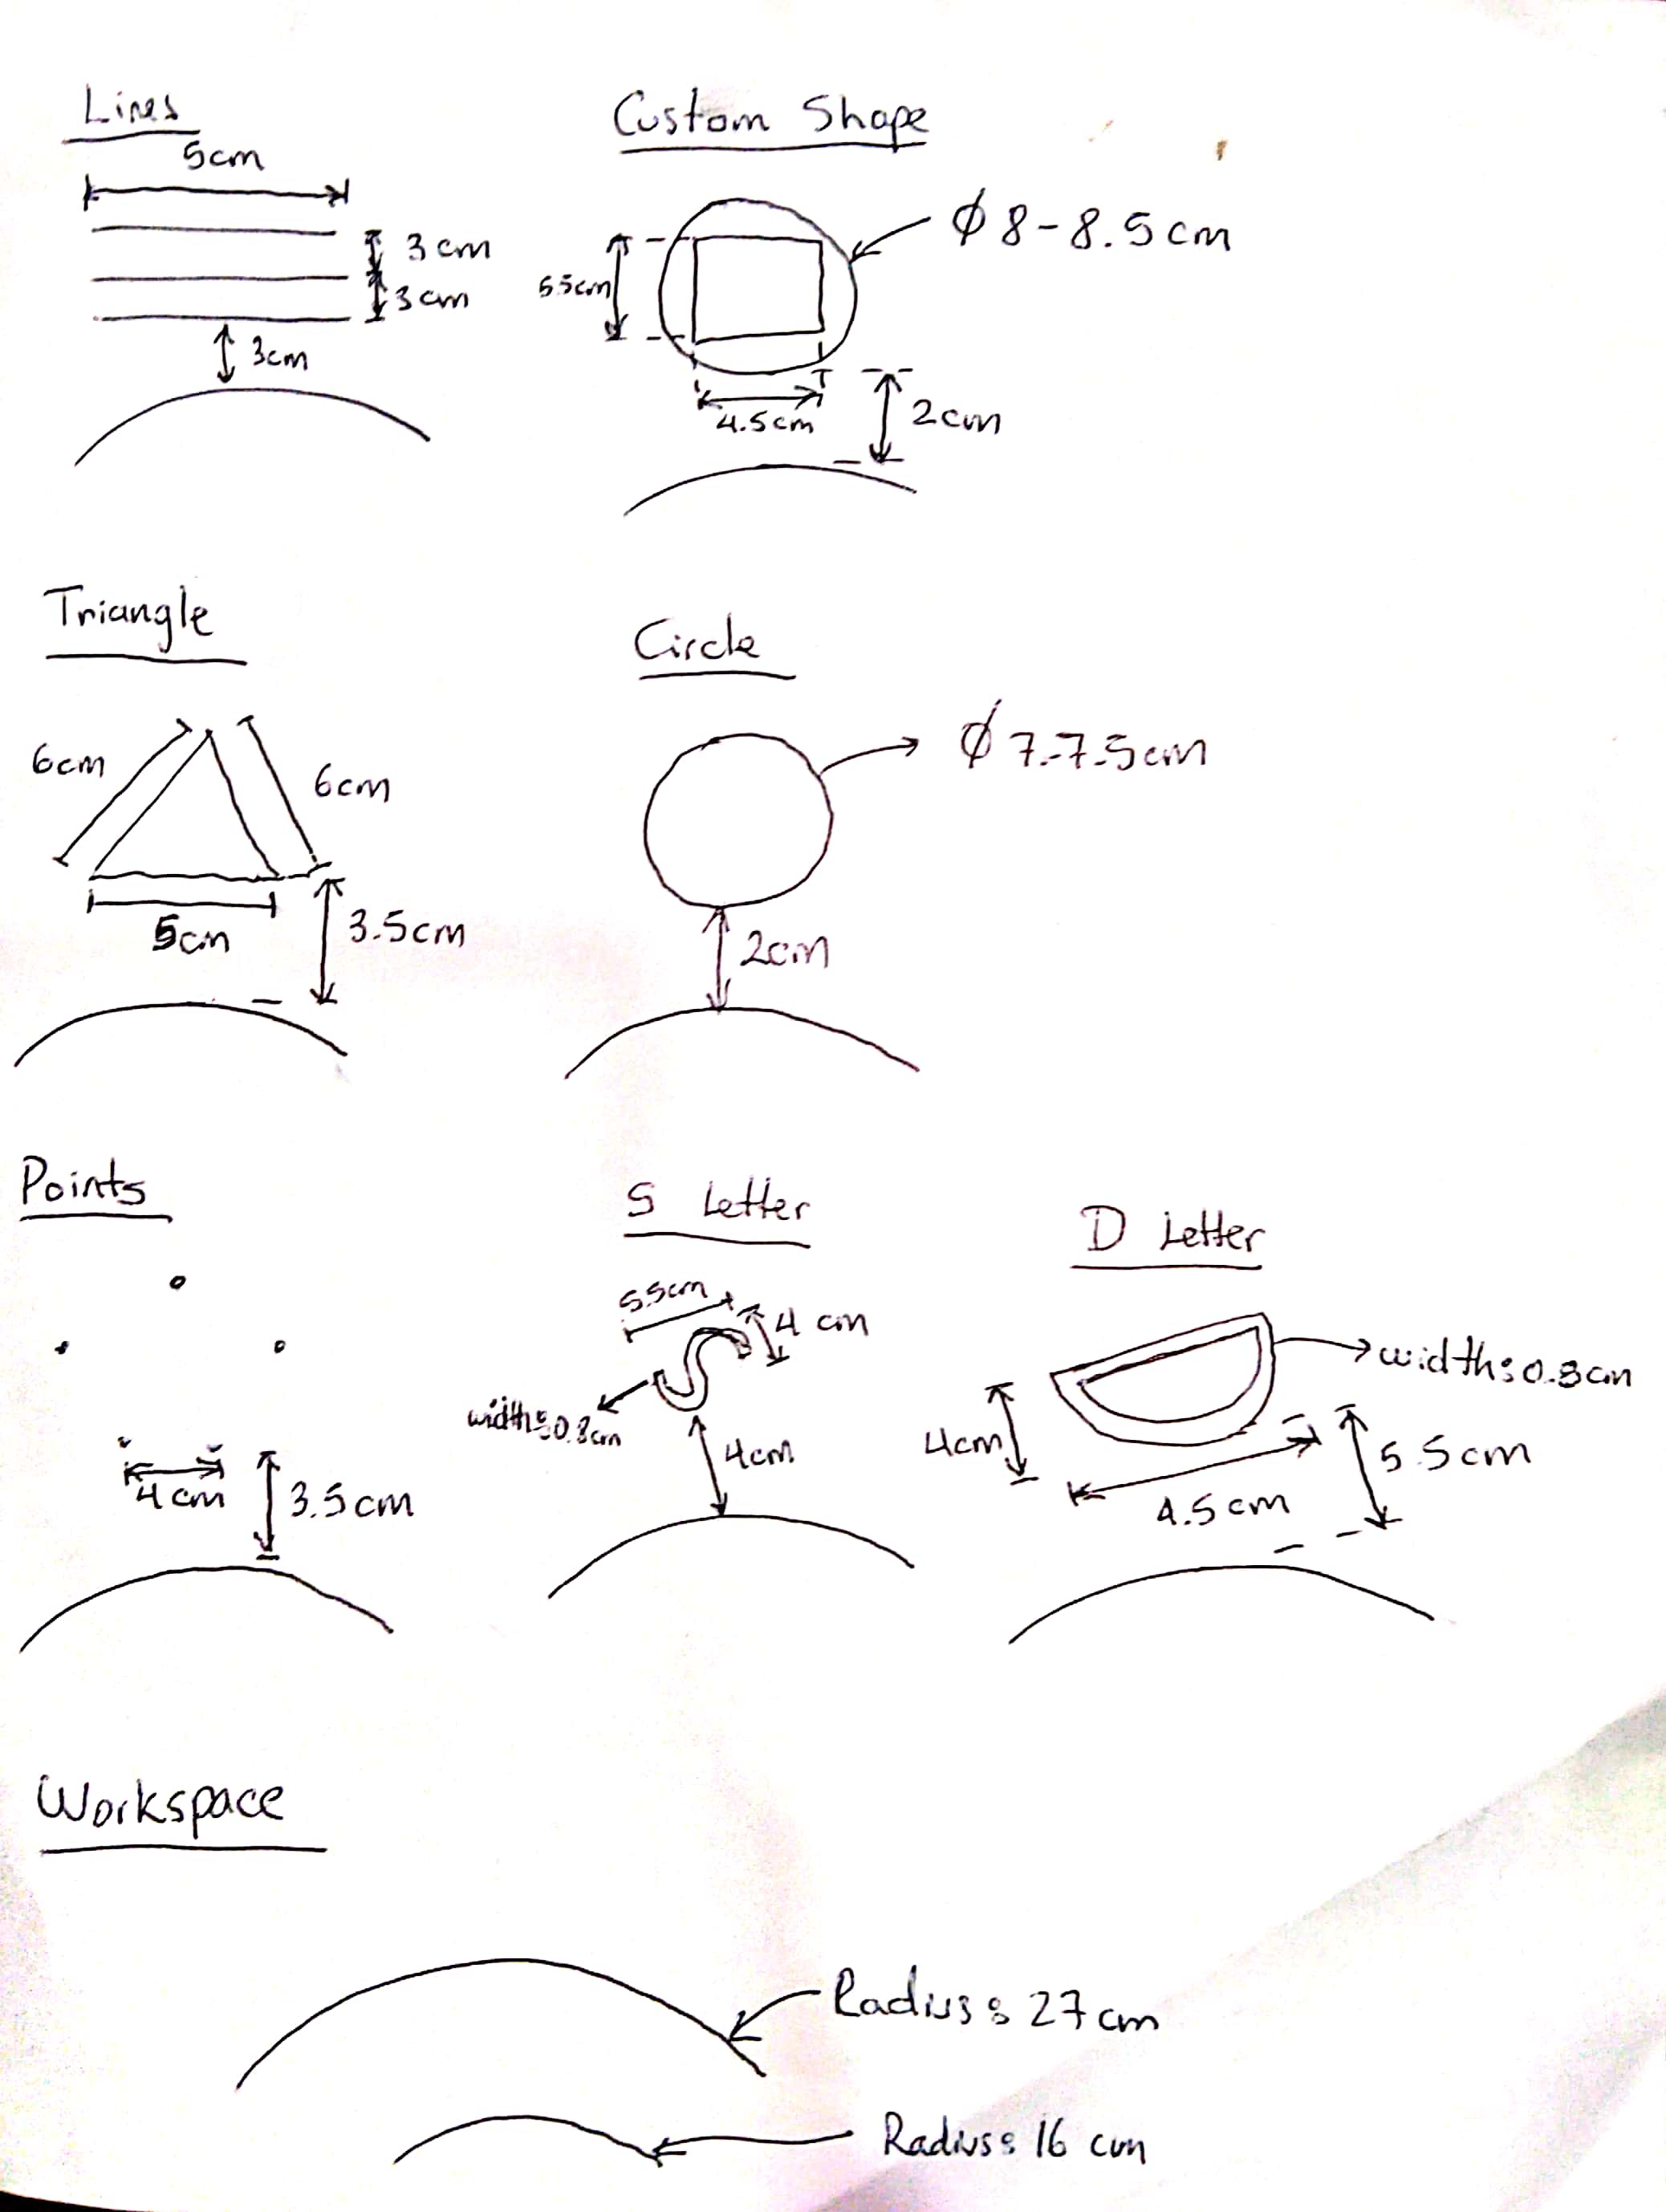 Lines
5cm
3cm
3cm
3cm
Custom Shape
Ø 8-8.5cm
5.5cm
4.5cm
2cm
Triangle
6cm
6cm
5cm
3.5cm
Circle
Ø 7-7.5cm
2cm
Points
4cm
3.5cm
S Letter
5.5cm
4 cm
width:0.8cm
4cm
D Letter
width:0.8cm
4cm
4.5cm
5.5cm
Workspace
Radius: 27cm
Radius: 16 cm